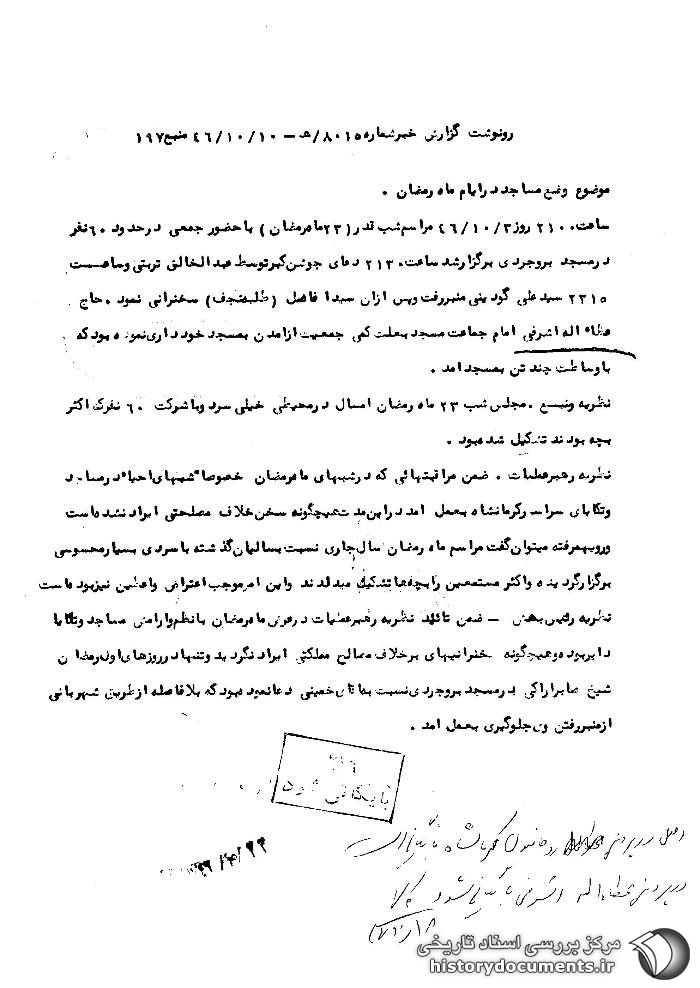 رونوشت گزارش خبر شماره ۸۰۱۵/هـ - ۴۶/۱۰/۱۰ منبع ۱۹۷
موضوع وضع مساجد در ایام ماه رمضان .
ساعت ۲۱۰۰ روز ۴۶/۱۰/۳ مراسم شب قدر (۲۳ ماه رمضان) با حضور جمعی در حدود ۶۰ نفر
در مسجد بروجردی برگزار شد ساعت ۲۱۳۰ دعای جوشن کبیر توسط عبدالخالق تربتی و ساعت
۲۳۱۵ سید علی گودینی منبر رفت و پس از ان سید افاضل (طلبه نجف) سخنرانی نمود . حاج
عطاء اله اشرفی امام جماعت مسجد بعلت کمی جمعیت از امدن بمسجد خود داری نموده بود که
با وساطت چند تن بمسجد امد .
نظریه ومنبع . مجلس شب ۲۳ ماه رمضان امسال در محیطی خیلی سرد و با شرکت ۶۰ نفر که اکثر
بچه بودند تشکیل شده بود .
نظریه رهبر عملیات . ضمن مراقبتهائی که در شبهای ماه رمضان خصوصا" شبهای احیاء در مساجد
وتکایای سراسر کرمانشاه بعمل امد در این مدت هیچگونه سخن خلاف مصلحتی ایراد نشده است
ورویهمرفته میتوان گفت مراسم ماه رمضان سال جاری نسبت بسالیان گذشته با سردی بسیار محسوسی
برگزار گردیده واکثر مستمعین را بچه ها تشکیل میدادند واین امر موجب اعتراض واعظین نیز بوده است
نظریه رئیس بخش - ضمن تائید نظریه رهبر عملیات در عرض ماه رمضان با نظم وارامش مساجد وتکایا
دایر بوده وهیچگونه سخنرانیهای بر خلاف مصالح مملکتی ایراد نگردید وتنها در روزهای اول رمضان
شیخ صابر اراکی در مسجد بروجردی نسبت به اقای خمینی دعا نموده بود که بلافاصله از طریق شهربانی
از منبر رفتن وی جلوگیری بعمل امد .
بایگانی شود
اصل در پرونده روحانیون کرمانشاه بایگانی است
در پرونده عطاءاله اشرفی بایگانی شود
مرکز بررسی اسناد تاریخی
historydocuments.ir